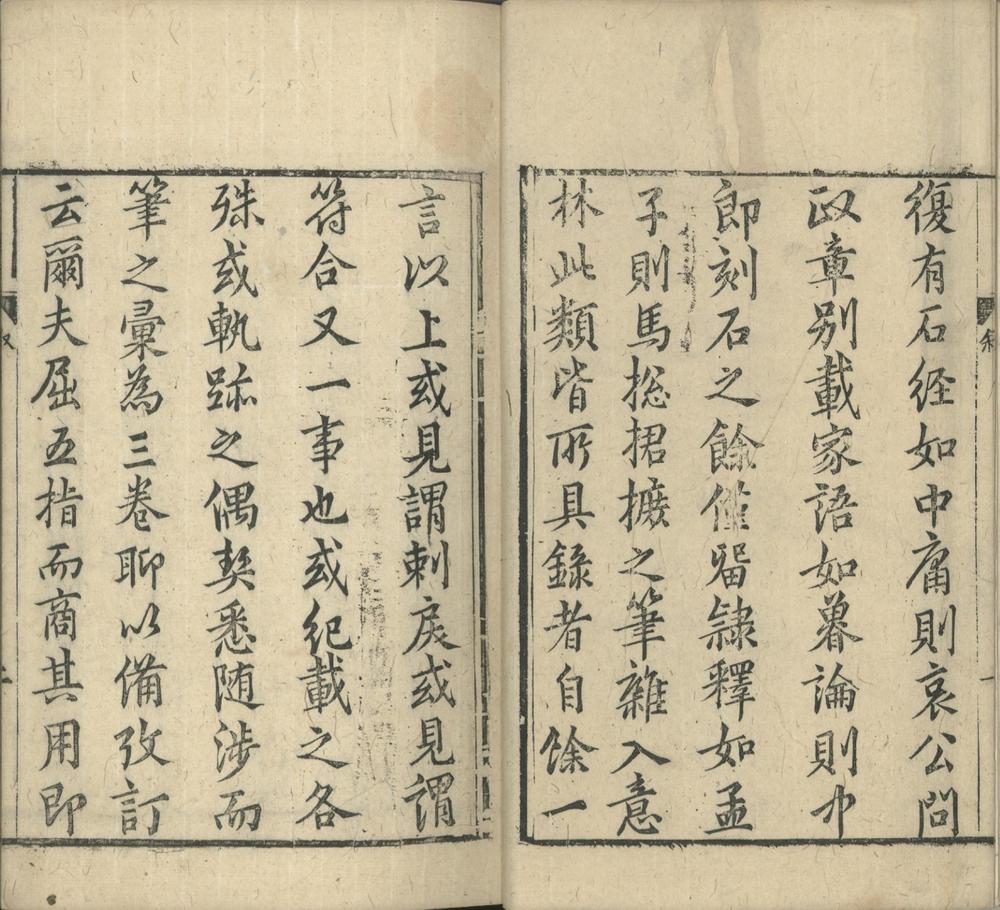 復有石经如中庸則哀公問
政章别載家語如魯論則中
郎刻石之餘僅留隷釋如孟
子則馬捴捃摭之筆雜入意
林此類皆所具錄者自餘一
言以上或見謂剌戾或見謂
符合又一事也或紀載之各
殊或軌跡之偶契悉随涉而
筆之彚為三卷聊以備攷訂
云爾夫屈五指而商其用即